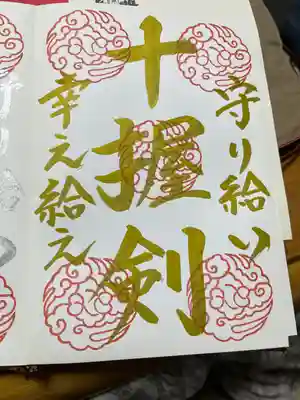 守り給い
十握剣
幸え給え